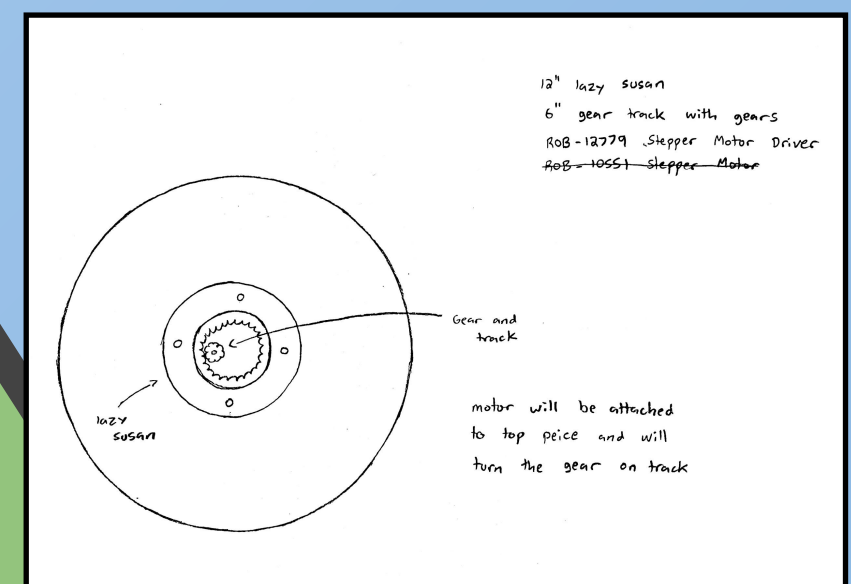 12" lazy susan
6" gear track with gears
ROB-12779 Stepper Motor Driver
ROB-10551 Stepper Motor
Gear and
track
lazy
susan
motor will be attached
to top peice and will
turn the gear on track